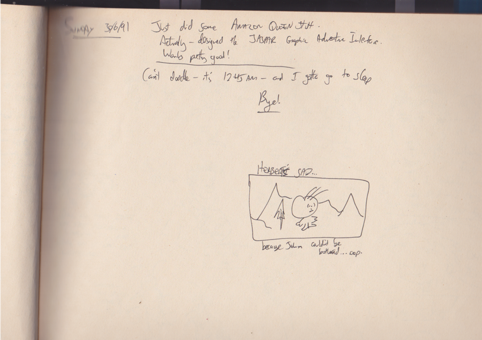 Sunday 30/6/91
Just did some Amazon Queen stuff.
Actually - designed the JASPAR Graphic Adventure Interface.
Works pretty good!
Can't doodle - it's 12:45am - and I gotta go to sleep
Bye!
Herbert's sad...
because John couldn't be
bothered...